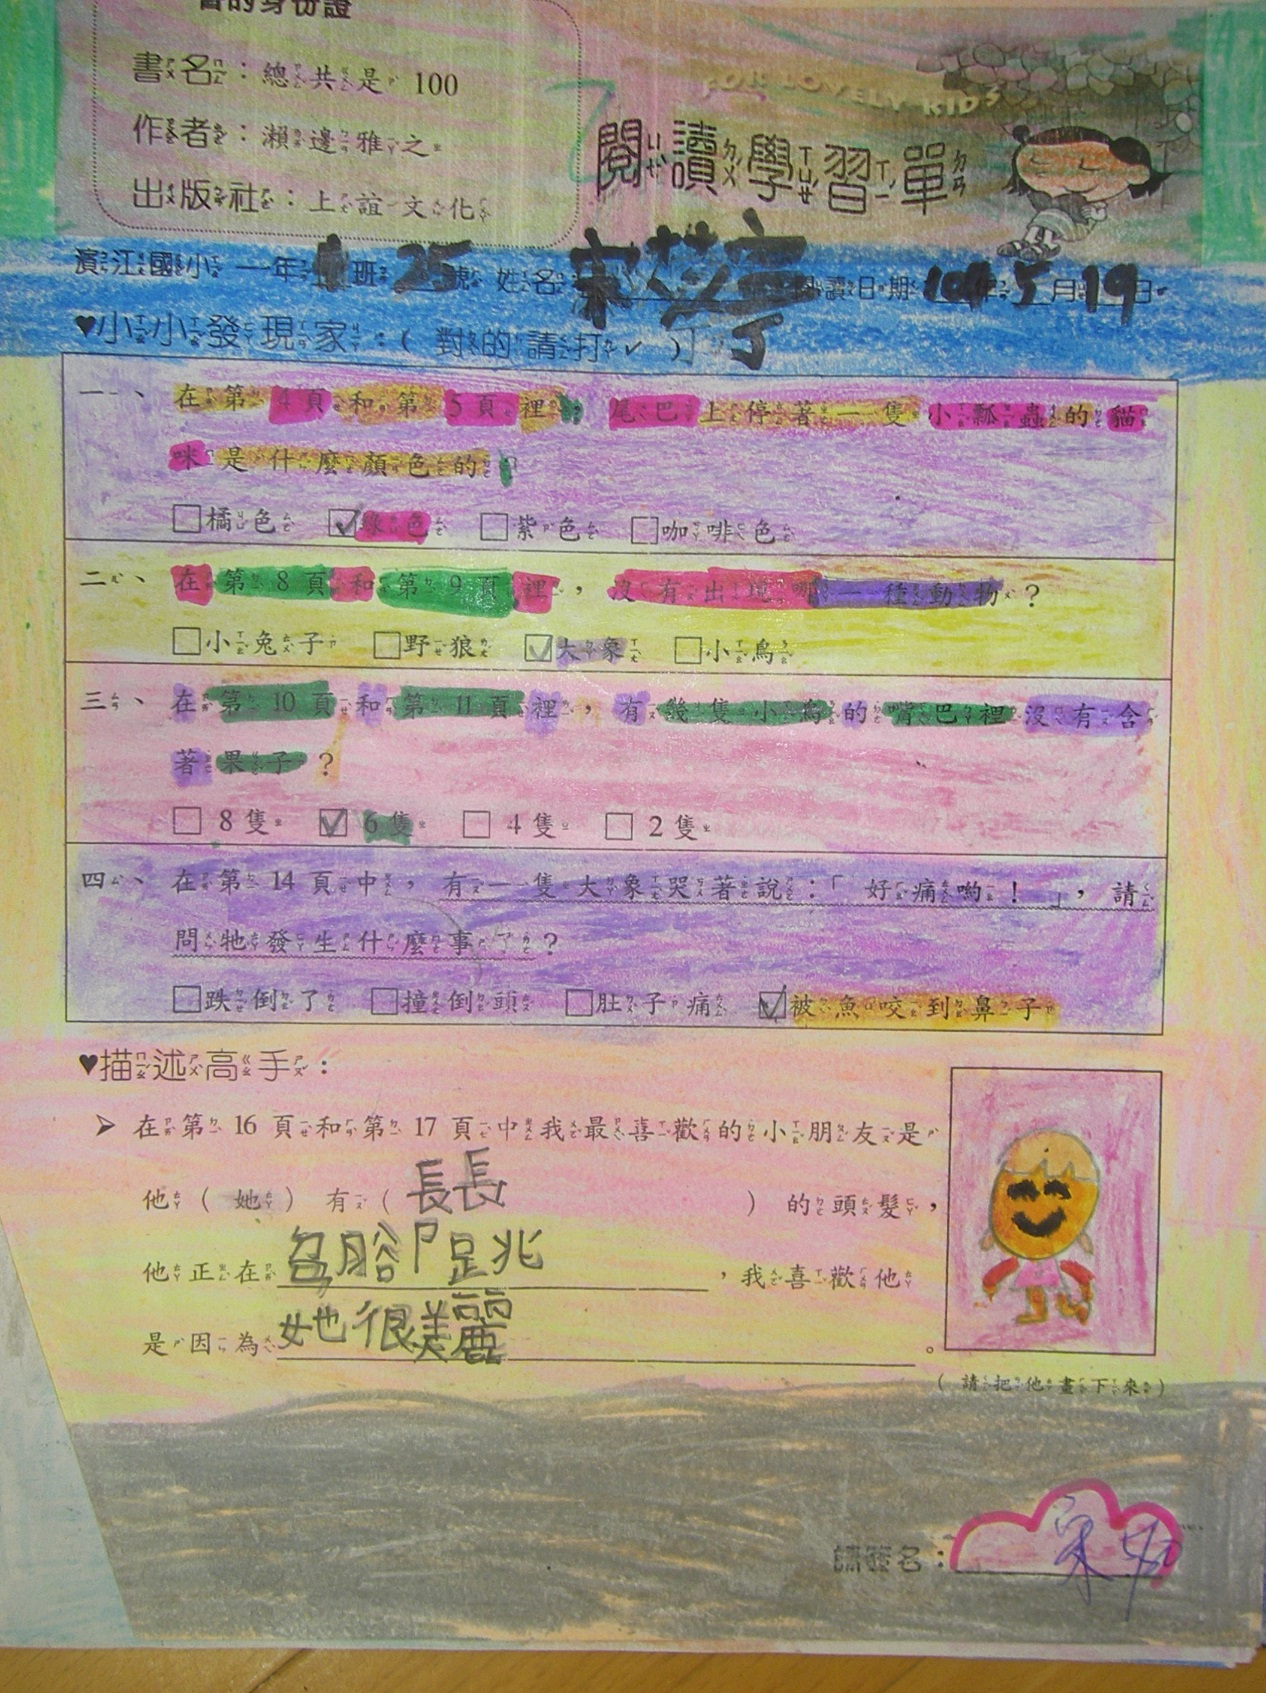 書的身份證
書名：總共是100
作者：瀨邊雅之
出版社：上誼文化
FOR LOVELY KIDS
閱讀學習單
濱江國小 一年 班 25 號 姓名 閱讀日期 104年5月19日
♥小小發現家：（對的請打✓）
一、在第4頁和第5頁裡，尾巴上停著一隻小瓢蟲的貓
咪是什麼顏色的？
□橘色 ☑綠色 □紫色 □咖啡色
二、在第8頁和第9頁裡，沒有出現哪一種動物？
□小兔子 □野狼 ☑大象 □小鳥
三、在第10頁和第11頁裡，有幾隻小鳥的嘴巴裡沒有含
著果子？
□8隻 ☑6隻 □4隻 □2隻
四、在第14頁中，有一隻大象哭著說：「好痛喲！」，請
問牠發生什麼事了？
□跌倒了 □撞倒頭 □肚子痛 ☑被魚咬到鼻子
♥描述高手：
➢在第16頁和第17頁中我最喜歡的小朋友是
他（她）有（長長）的頭髮，
他正在 ，我喜歡他
是因為她很美麗。
（請把他畫下來）
請簽名：